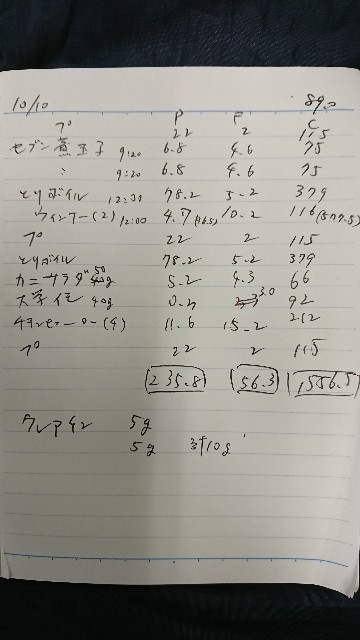 10/10 89.0
P F C
プ 22 2 115
セブン煮玉子 9:20 6.8 4.6 75
〃 9:20 6.8 4.6 75
とりボイル 12:00 78.2 5.2 379
ウィンナー(2) 12:00 4.7 (16.5) 10.2 116 (577.5)
プ 22 2 115
とりボイル 78.2 5.2 379
カニサラダ 50g 5.2 4.3 66
大学イモ 40g 3.0 92
(4) 11.6 15.2 212
プ 22 2 115
235.8 56.3 1556.5
クレアチン 5g
5g 計10g